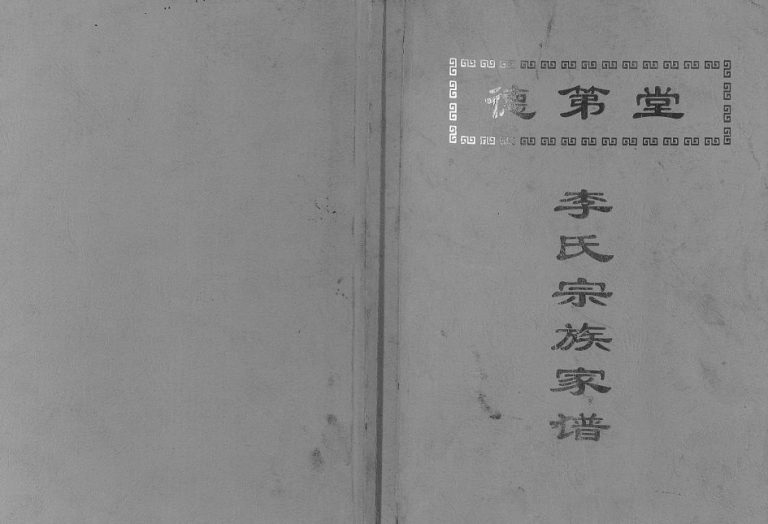 德第堂
李氏宗族家谱